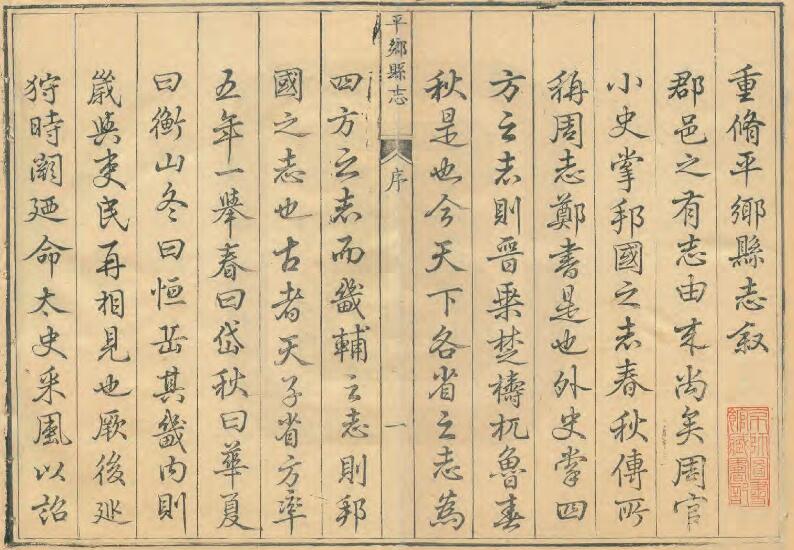 重脩平鄉縣志叙
郡邑之有志由来尚矣周官
小史掌邦國之志春秋傳所
稱周志鄭書是也外史掌四
方之志則晉乘楚檮杌魯春
秋是也今天下各省之志為
平鄉縣志
序
一
四方之志而畿輔之志則邦
國之志也古者天子省方率
五年一舉春曰岱秋曰華夏
曰衡山冬曰恒岳其畿内則
歲與吏民再相見也厥後巡
狩時闕廼命太史采風以詔
京師圖書
館藏書記